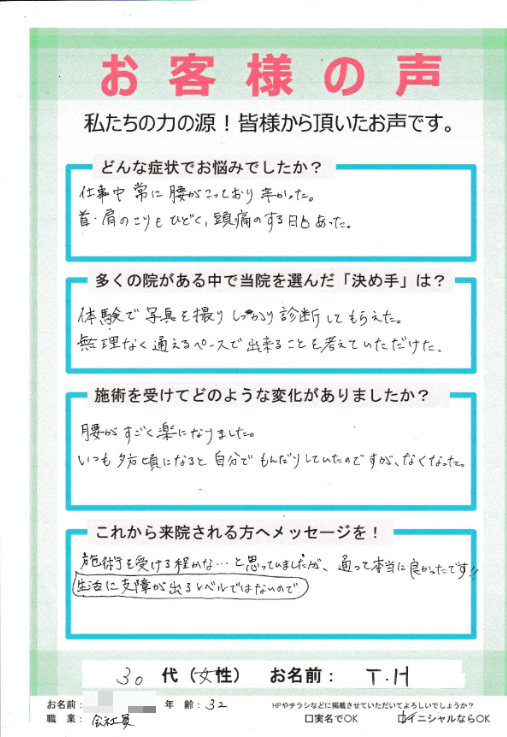 お客様の声
私たちの力の源！皆様から頂いたお声です。
どんな症状でお悩みでしたか？
仕事中 常に腰がこっており辛かった。
首・肩のこりもひどく、頭痛のする日もあった。
多くの院がある中で当院を選んだ「決め手」は？
体験で写真を撮りしっかり診断してもらえた。
無理なく通えるペースで出来ることを考えていただけた。
施術を受けてどのような変化がありましたか？
腰がすごく楽になりました。
いつも夕方頃になると自分でもんだりしていたのですが、なくなった。
これから来院される方へメッセージを！
施術を受ける程かな…と思っていましたが、通って本当に良かったです!!
生活に支障が出るレベルではないので
30 代（女性） お名前： T.H
お名前： 年 齢：32 HPやチラシなどに掲載させていただいてよろしいでしょうか？
職 業： 会社員 □実名でOK □イニシャルならOK